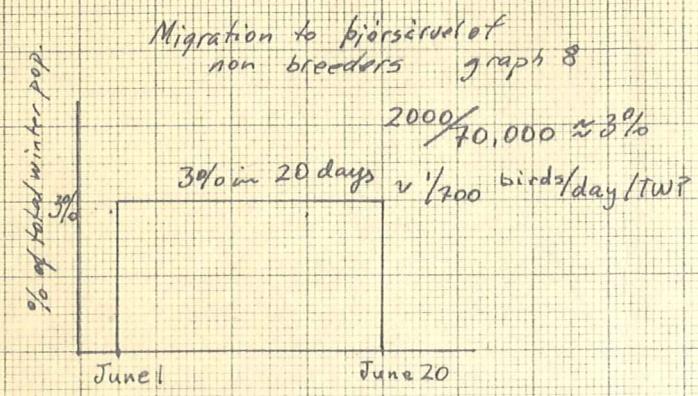 Migration to þjórsárvel of
non breeders graph 8
2000/70,000 ≈ 3%
3% in 20 days ~ 1/700 birds/day/TWP
3%
% of total winter pop.
June 1 June 20